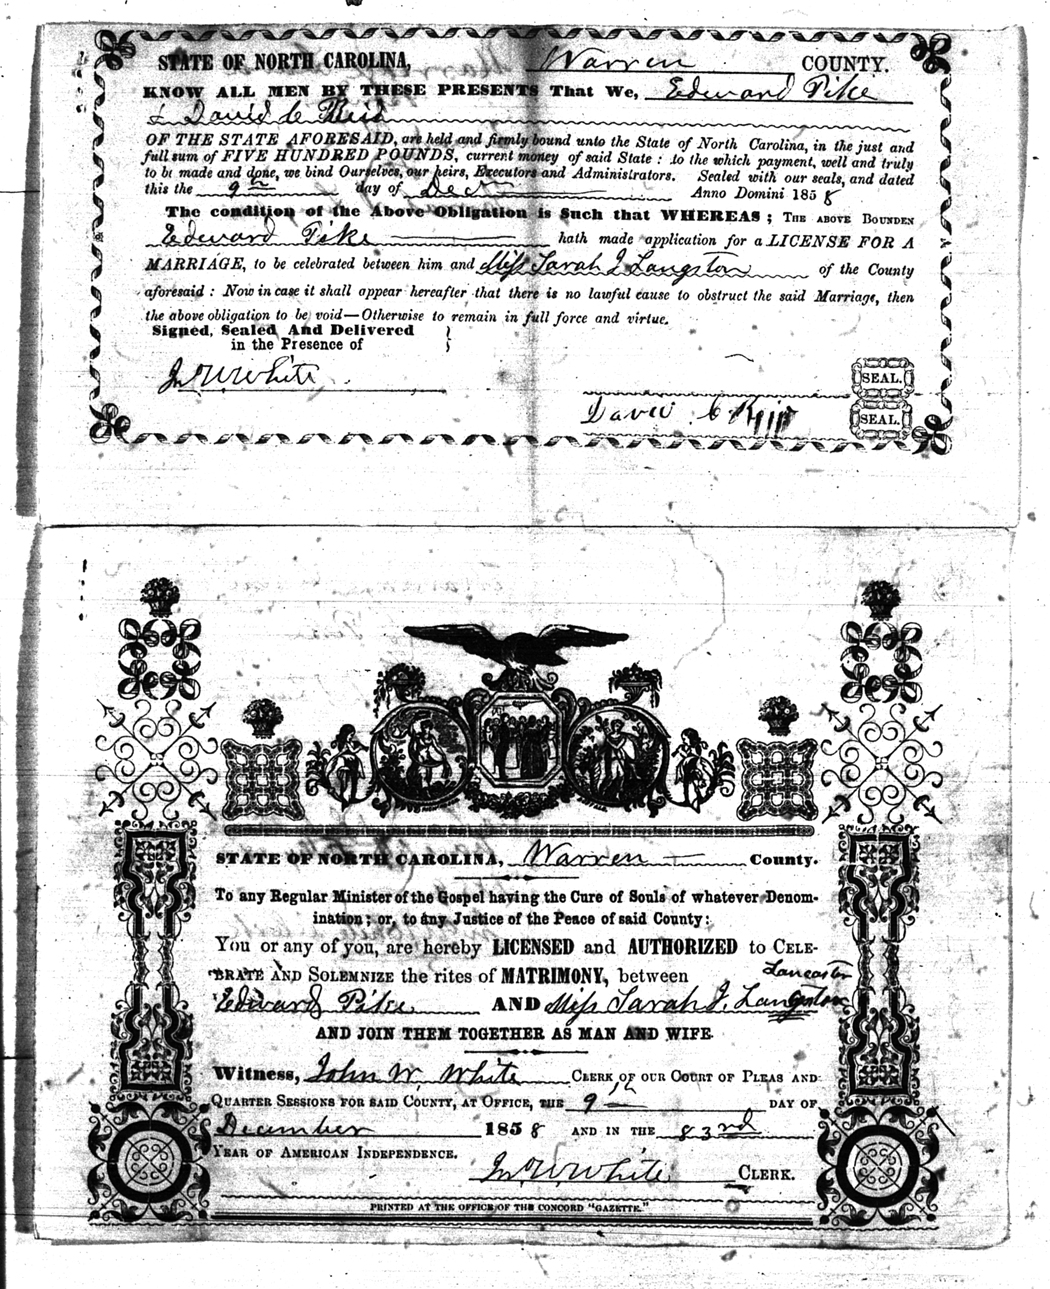 STATE OF NORTH CAROLINA, Warren COUNTY.
KNOW ALL MEN BY THESE PRESENTS That We, Edward Pike
& David C
OF THE STATE AFORESAID, are held and firmly bound unto the State of North Carolina, in the just and
full sum of FIVE HUNDRED POUNDS, current money of said State: to the which payment, well and truly
to be made and done, we bind Ourselves, our heirs, Executors and Administrators. Sealed with our seals, and dated
this the 9th day of Decm Anno Domini 1858
The condition of the Above Obligation is Such that WHEREAS; THE ABOVE BOUNDEN
Edward Pike hath made application for a LICENSE FOR A
MARRIAGE, to be celebrated between him and Miss Sarah J Langston of the County
aforesaid: Now in case it shall appear hereafter that there is no lawful cause to obstruct the said Marriage, then
the above obligation to be void—Otherwise to remain in full force and virtue.
Signed, Sealed And Delivered
in the Presence of
Jno W White
SEAL.
David C SEAL.
STATE OF NORTH CAROLINA, Warren County.
To any Regular Minister of the Gospel having the Cure of Souls of whatever Denom-
ination; or, to any Justice of the Peace of said County:
You or any of you, are hereby LICENSED and AUTHORIZED to CELE-
BRATE AND SOLEMNIZE the rites of MATRIMONY, between Lancaster
Edward Pike AND Miss Sarah J. Langston
AND JOIN THEM TOGETHER AS MAN AND WIFE.
Witness, John W. White CLERK OF OUR COURT OF PLEAS AND
QUARTER SESSIONS FOR SAID COUNTY, AT OFFICE, THE 9th DAY OF
December 1858 AND IN THE 83rd
YEAR OF AMERICAN INDEPENDENCE.
Jno W White CLERK.
PRINTED AT THE OFFICE OF THE CONCORD "GAZETTE."